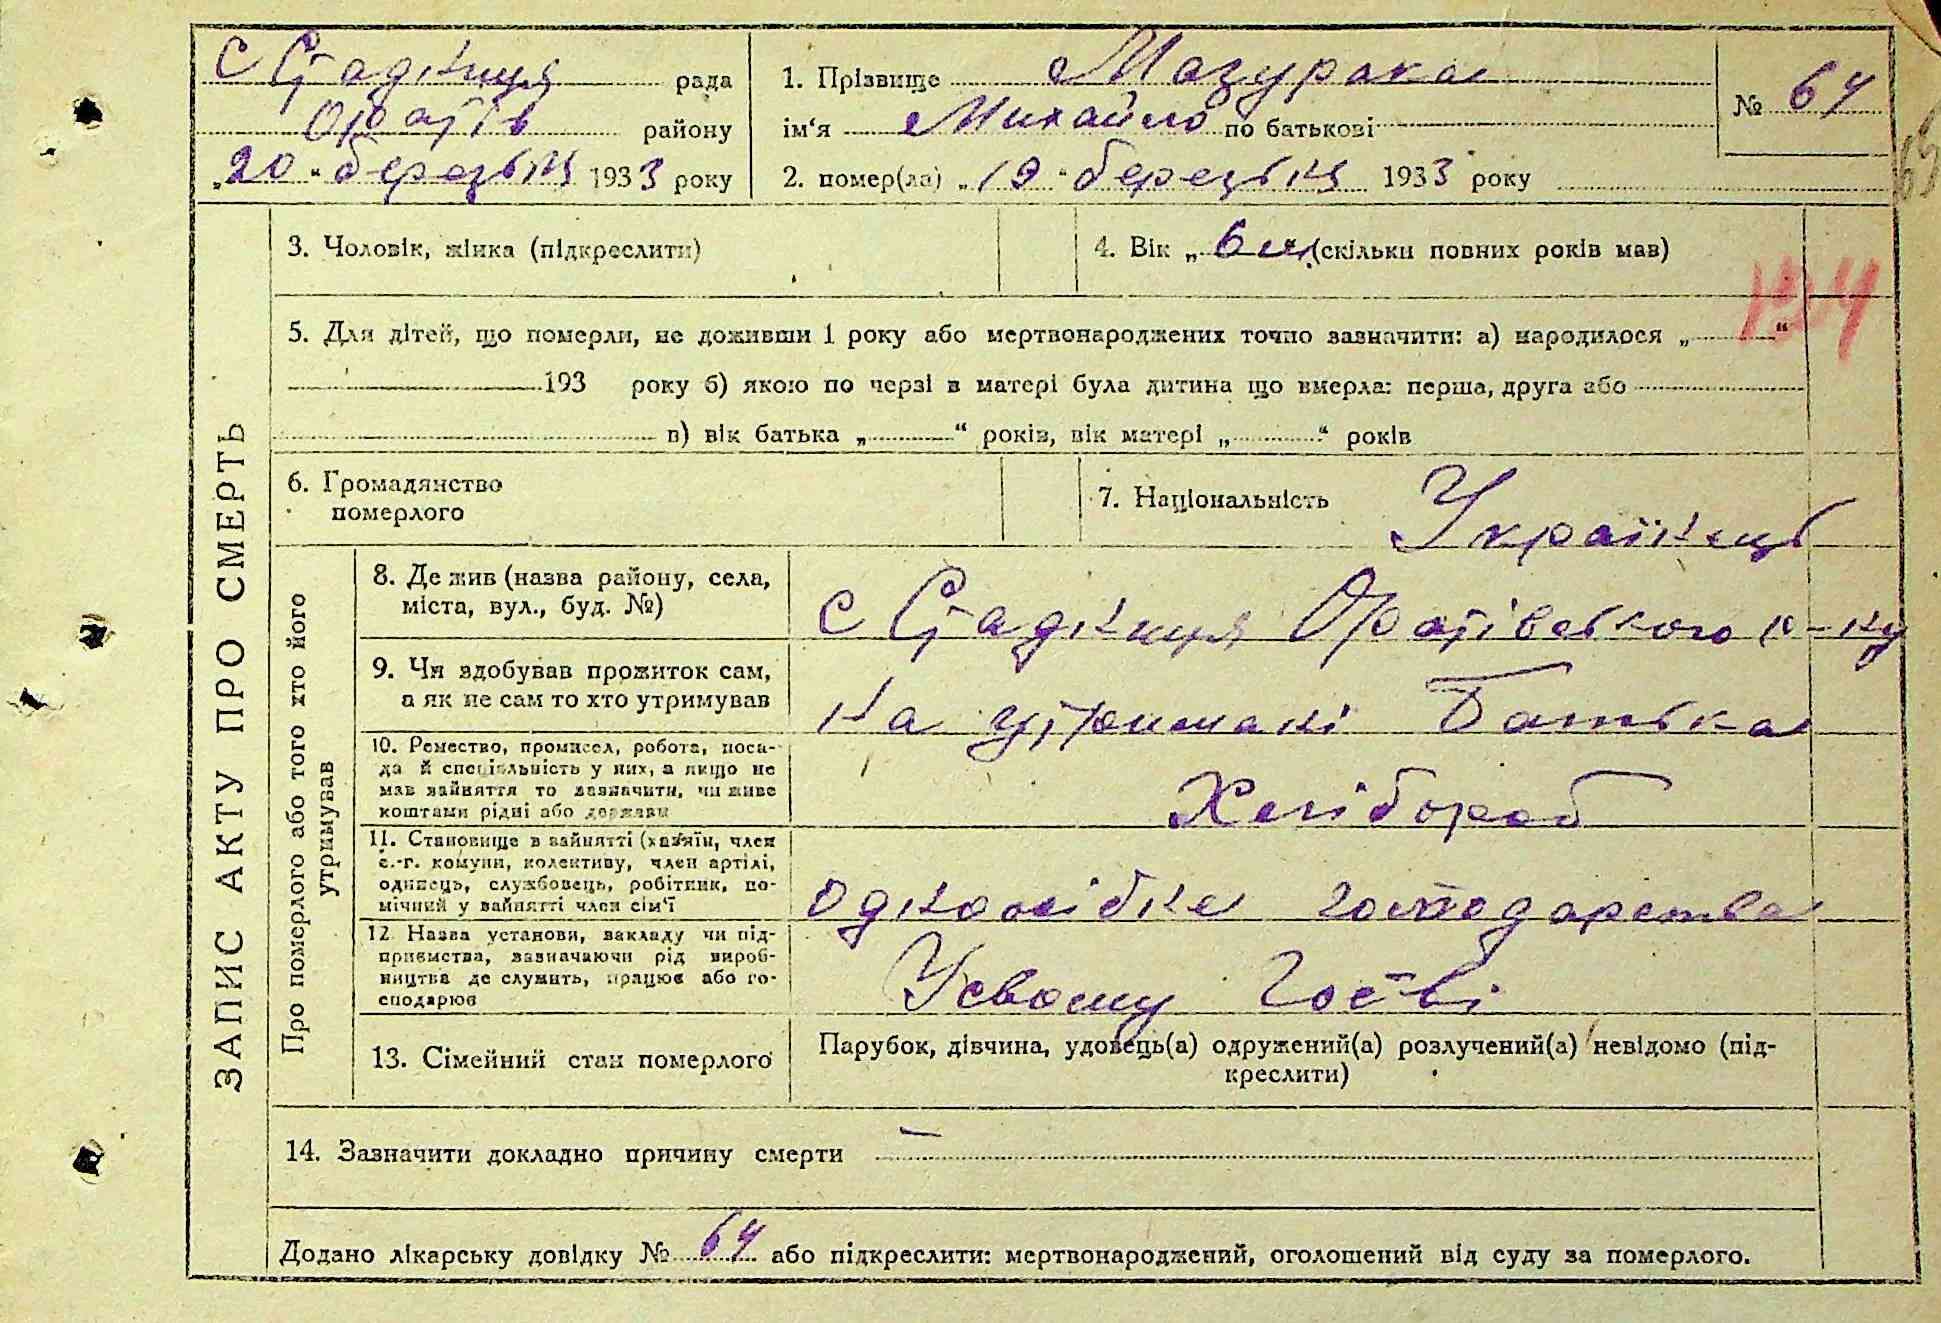 с Стадниця рада
Оратів району
„20“ березня 1933 року
1. Прізвище Мазурака
ім‘я Михайло по батькові
2. помер(ла) „19“ березня 1933 року
№ 64
ЗАПИС АКТУ ПРО СМЕРТЬ
3. Чоловік, жінка (підкреслити)
4. Вік „6 м (скільки повних років мав)
5. Для дітей, що померли, не доживши 1 року або мертвонароджених точно зазначити: а) народилося „ “
193 року б) якою по черзі в матері була дитина що вмерла: перша, друга або
в) вік батька „ “ років, вік матері „ “ років
6. Громадянство
померлого
7. Національність Українець
Про померлого або того хто його
утримував
8. Де жив (назва району, села,
міста, вул., буд. №)
с Стадниця Оратівського р-ну
9. Чи здобував прожиток сам,
а як не сам то хто утримував
на утримані Батька
10. Ремество, промисел, робота, поса-
да й спеціяльність у них, а якщо не
мав зайняття то зазначити, чи живе
коштами рідні або держави
Хлібороб
11. Становище в зайнятті (хазяїн, член
с.-г. комуни, колективу, член артілі,
одинець, службовець, робітник, по-
мічний у зайнятті член сім‘ї
одноосібне господарства
12. Назва установи, закладу чи під-
приємства, зазначаючи рід вироб-
ництва де служить, працює або го-
сподарює
Усвому гос-ві
13. Сімейний стан померлого
Парубок, дівчина, удовець(а) одружений(а) розлучений(а) невідомо (під-
креслити)
14. Зазначити докладно причину смерти —
Додано лікарську довідку № 64 або підкреслити: мертвонароджений, оголошений від суду за померлого.